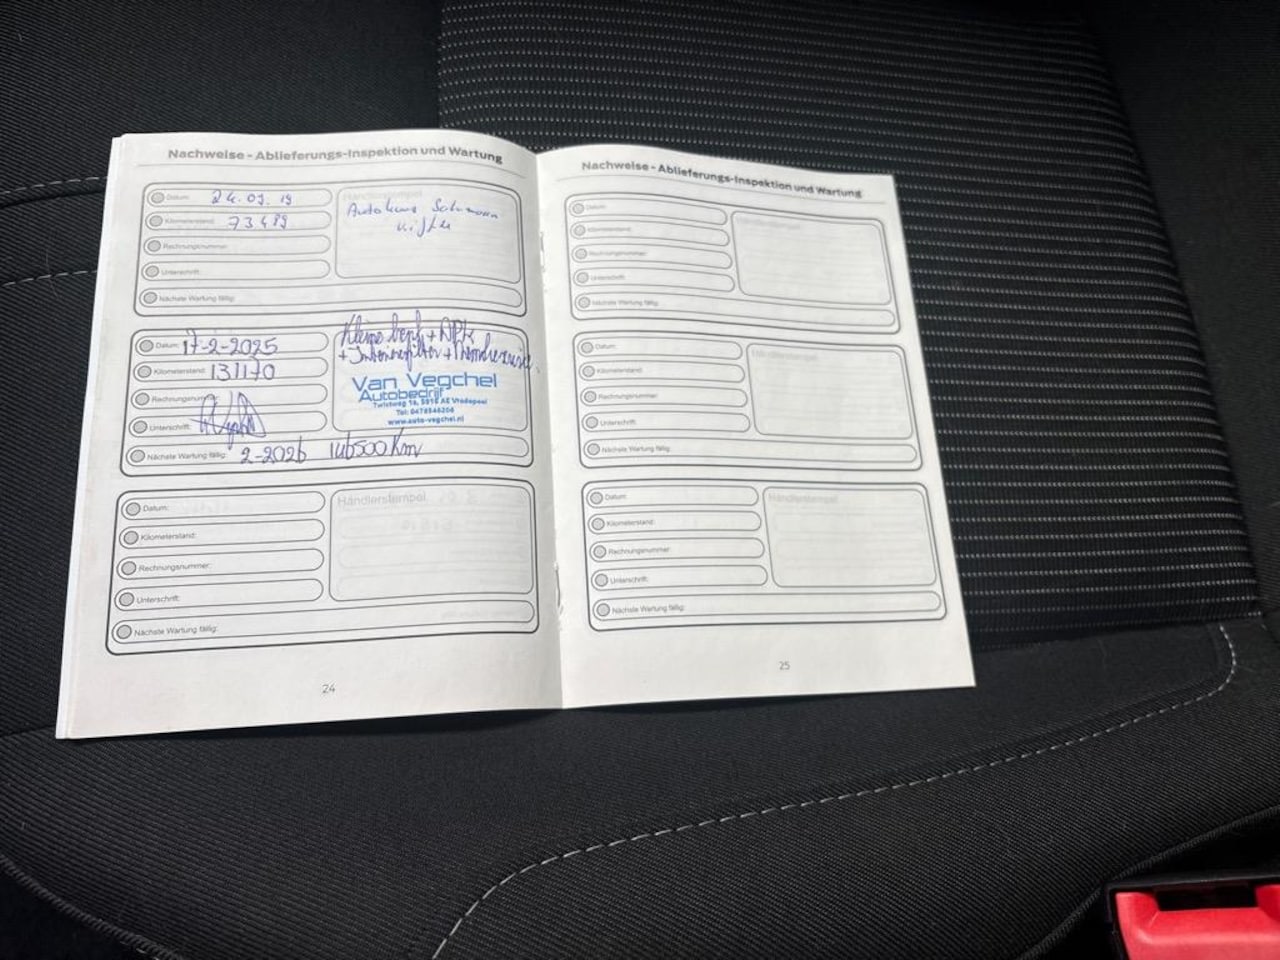 Nachweise - Ablieferungs-Inspektion und Wartung
Datum: 24.09.19
Kilometerstand: 73489
Rechnungsnummer:
Unterschrift:
Nächste Wartung fällig:
Autohaus
Datum: 17-2-2025
Kilometerstand: 131170
Rechnungsnummer:
Unterschrift:
Nächste Wartung fällig: 2-2026 146500 Km
Kleine beurt + APK
+ Interieurfilter +
Van Vegchel
Autobedrijf
Twistweg 16, 5816 AE Vredepeel
Tel: 0478546206
www.auto-vegchel.nl
Datum:
Kilometerstand:
Rechnungsnummer:
Unterschrift:
Nächste Wartung fällig:
Händlerstempel
24
Nachweise - Ablieferungs-Inspektion und Wartung
Datum:
Kilometerstand:
Rechnungsnummer:
Unterschrift:
Nächste Wartung fällig:
Händlerstempel
Datum:
Kilometerstand:
Rechnungsnummer:
Unterschrift:
Nächste Wartung fällig:
Händlerstempel
Datum:
Kilometerstand:
Rechnungsnummer:
Unterschrift:
Nächste Wartung fällig:
Händlerstempel
25